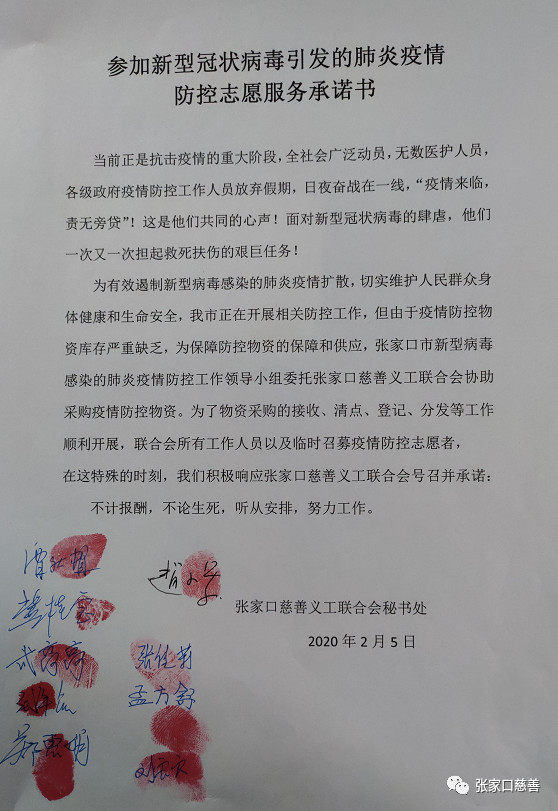 参加新型冠状病毒引发的肺炎疫情
防控志愿服务承诺书
当前正是抗击疫情的重大阶段，全社会广泛动员，无数医护人员，
各级政府疫情防控工作人员放弃假期，日夜奋战在一线，“疫情来临，
责无旁贷”！这是他们共同的心声！面对新型冠状病毒的肆虐，他们
一次又一次担起救死扶伤的艰巨任务！
为有效遏制新型病毒感染的肺炎疫情扩散，切实维护人民群众身
体健康和生命安全，我市正在开展相关防控工作，但由于疫情防控物
资库存严重缺乏，为保障防控物资的保障和供应，张家口市新型病毒
感染的肺炎疫情防控工作领导小组委托张家口慈善义工联合会协助
采购疫情防控物资。为了物资采购的接收、清点、登记、分发等工作
顺利开展，联合会所有工作人员以及临时召募疫情防控志愿者，
在这特殊的时刻，我们积极响应张家口慈善义工联合会号召并承诺：
不计报酬，不论生死，听从安排，努力工作。
张家口慈善义工联合会秘书处
2020 年 2 月 5 日
张佳莉
孟方舒
张家口慈善